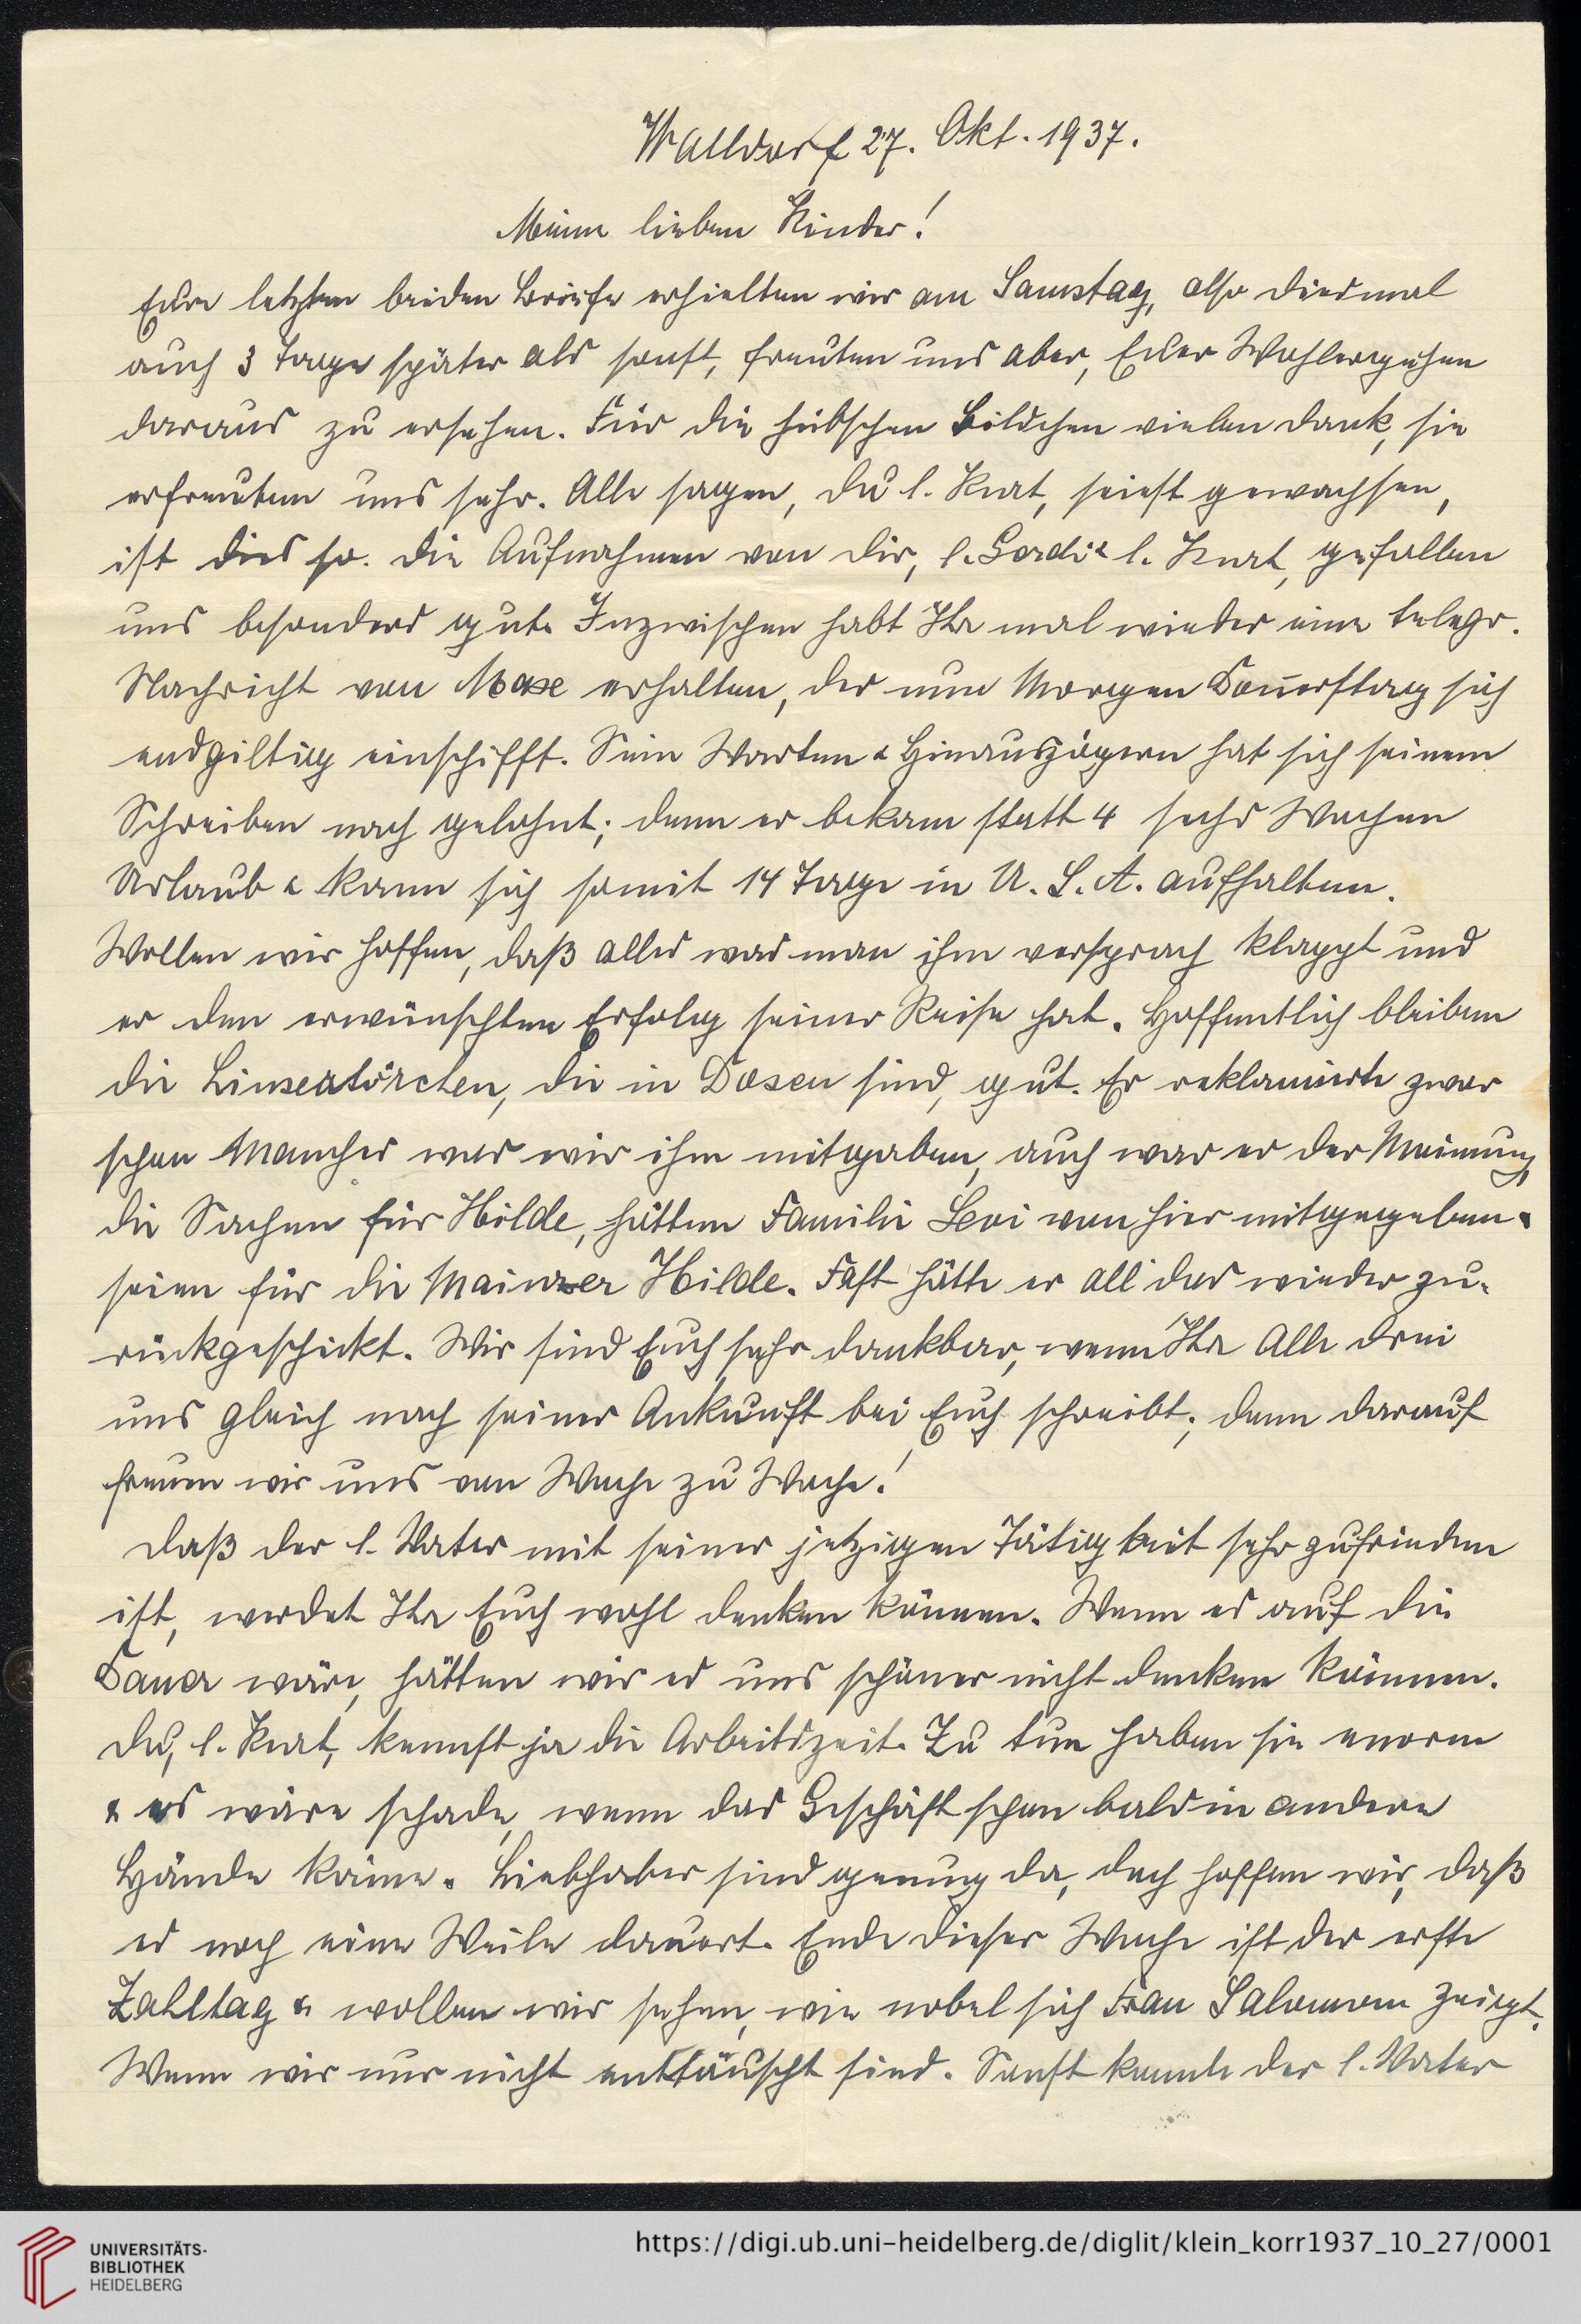 Walldorf 27. Okt. 1937.
Meine lieben Kinder!
Eure letzten beiden Briefe erhielten wir am Samstag, also diesmal
auch 3 Tage später als sonst, freuten uns aber, Euer Wohlergehen
daraus zu ersehen. Für die hübschen Bildchen vielen Dank, sie
erfreuten uns sehr. Alle sagen, Du l. Kurt, seiest gewachsen,
ist dies so. Die Aufnahmen von Dir, l. Gerdi & l. Kurt, gefallen
uns besonders gut. Inzwischen habt Ihr mal wieder eine telegr.
Nachricht von Max erhalten, der nun Morgen Donnerstag sich
endgiltig einschifft. Sein Warten & Hinauszögern hat sich seinem
Schreiben nach gelohnt; denn er bekam statt 4 sechs Wochen
Urlaub & kann sich somit 14 Tage in U.S.A. aufhalten.
Wollen wir hoffen, daß alles was man ihm versprach klappt und
er den erwünschten Erfolg seiner Reise hat. Hoffentlich bleiben
die Linsertörtchen, die in Dosen sind, gut. Er reklamierte zwar
schon Manches was wir ihm mitgaben, auch war er der Meinung,
die Sachen für Hilde, hätten Familie Levi von hier mitgegeben &
seien für die Mainzer Hilde. Fast hätte er all das wieder zu-
rückgeschickt. Wir sind Euch sehr dankbar, wenn Ihr Alle drei
uns gleich nach seiner Ankunft bei Euch schreibt; denn darauf
freuen wir uns von Woche zu Woche!
Daß der l. Vater mit seiner jetzigen Tätigkeit sehr zufrieden
ist, werdet Ihr Euch wohl denken können. Wenn es auf die
Dauer wäre, hätten wir es uns schöner nicht denken können.
Du, l. Kurt, kennst ja die Arbeitszeit. Zu tun haben sie enorm
& es wäre schade, wenn das Geschäft schon bald in andere
Hände käme. Liebhaber sind genug da, doch hoffen wir, daß
es noch eine Weile dauert. Ende dieser Woche ist der erste
Zahltag & wollen wir sehen, wie nobel sich Frau Salomon zeigt.
Wenn wir nur nicht enttäuscht sind. Sonst konnte der l. Vater
UNIVERSITÄTS-
BIBLIOTHEK
HEIDELBERG
https://digi.ub.uni-heidelberg.de/diglit/klein_korr1937_10_27/0001